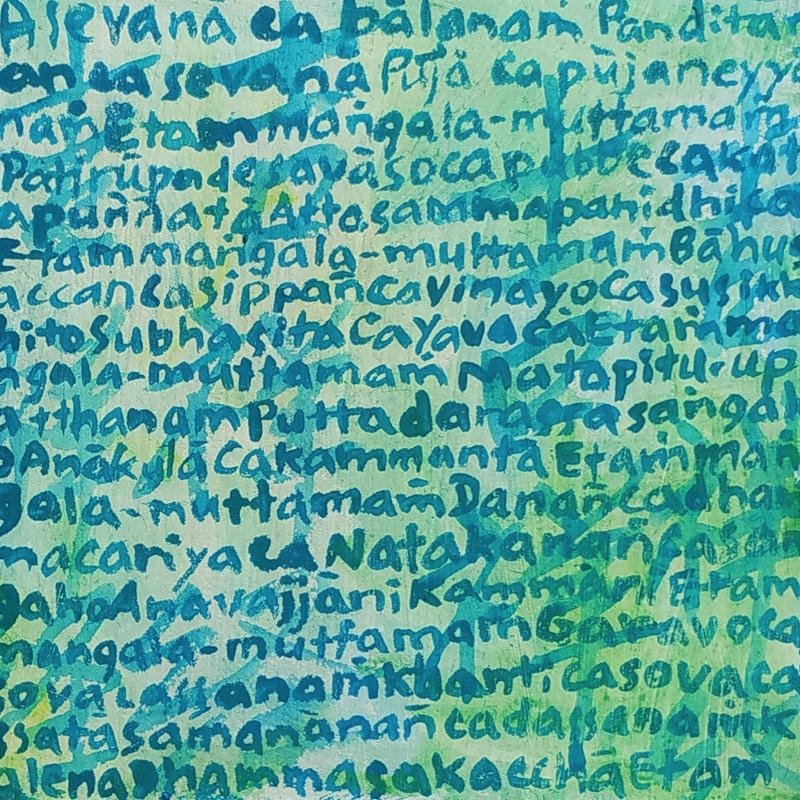 Asevanā ca bālanaṁ Pandita
an ca sevana Pūjā ca pūjaneyy
naṁ Etam maṅgala-muttamaṁ
Patirūpadesavāso ca pubbe ca kat
apuññatā Atta sammapanidhi ca
Etam maṅgala-muttamaṁ Bāhus
accan ca sippañ ca vinayo ca susikk
hito Subhasita Ca Yava cā Etaṁ ma
ngala-muttamaṁ Matapitu-up
atthanam Puttadarassa saṅgah
o Anākulā Ca kammantā Etaṁ maṅ
gala-muttamaṁ Danañ ca dham
macariya ca Natakanañ ca san
gaho Anavajjāni Kammāni Etam
mangala-muttamaṁ Garavo ca
sovacassanaṁ khanti ca sovaca
ssata samanānañ ca dassanaṁ k
alena Dhammasakacchā Etaṁ